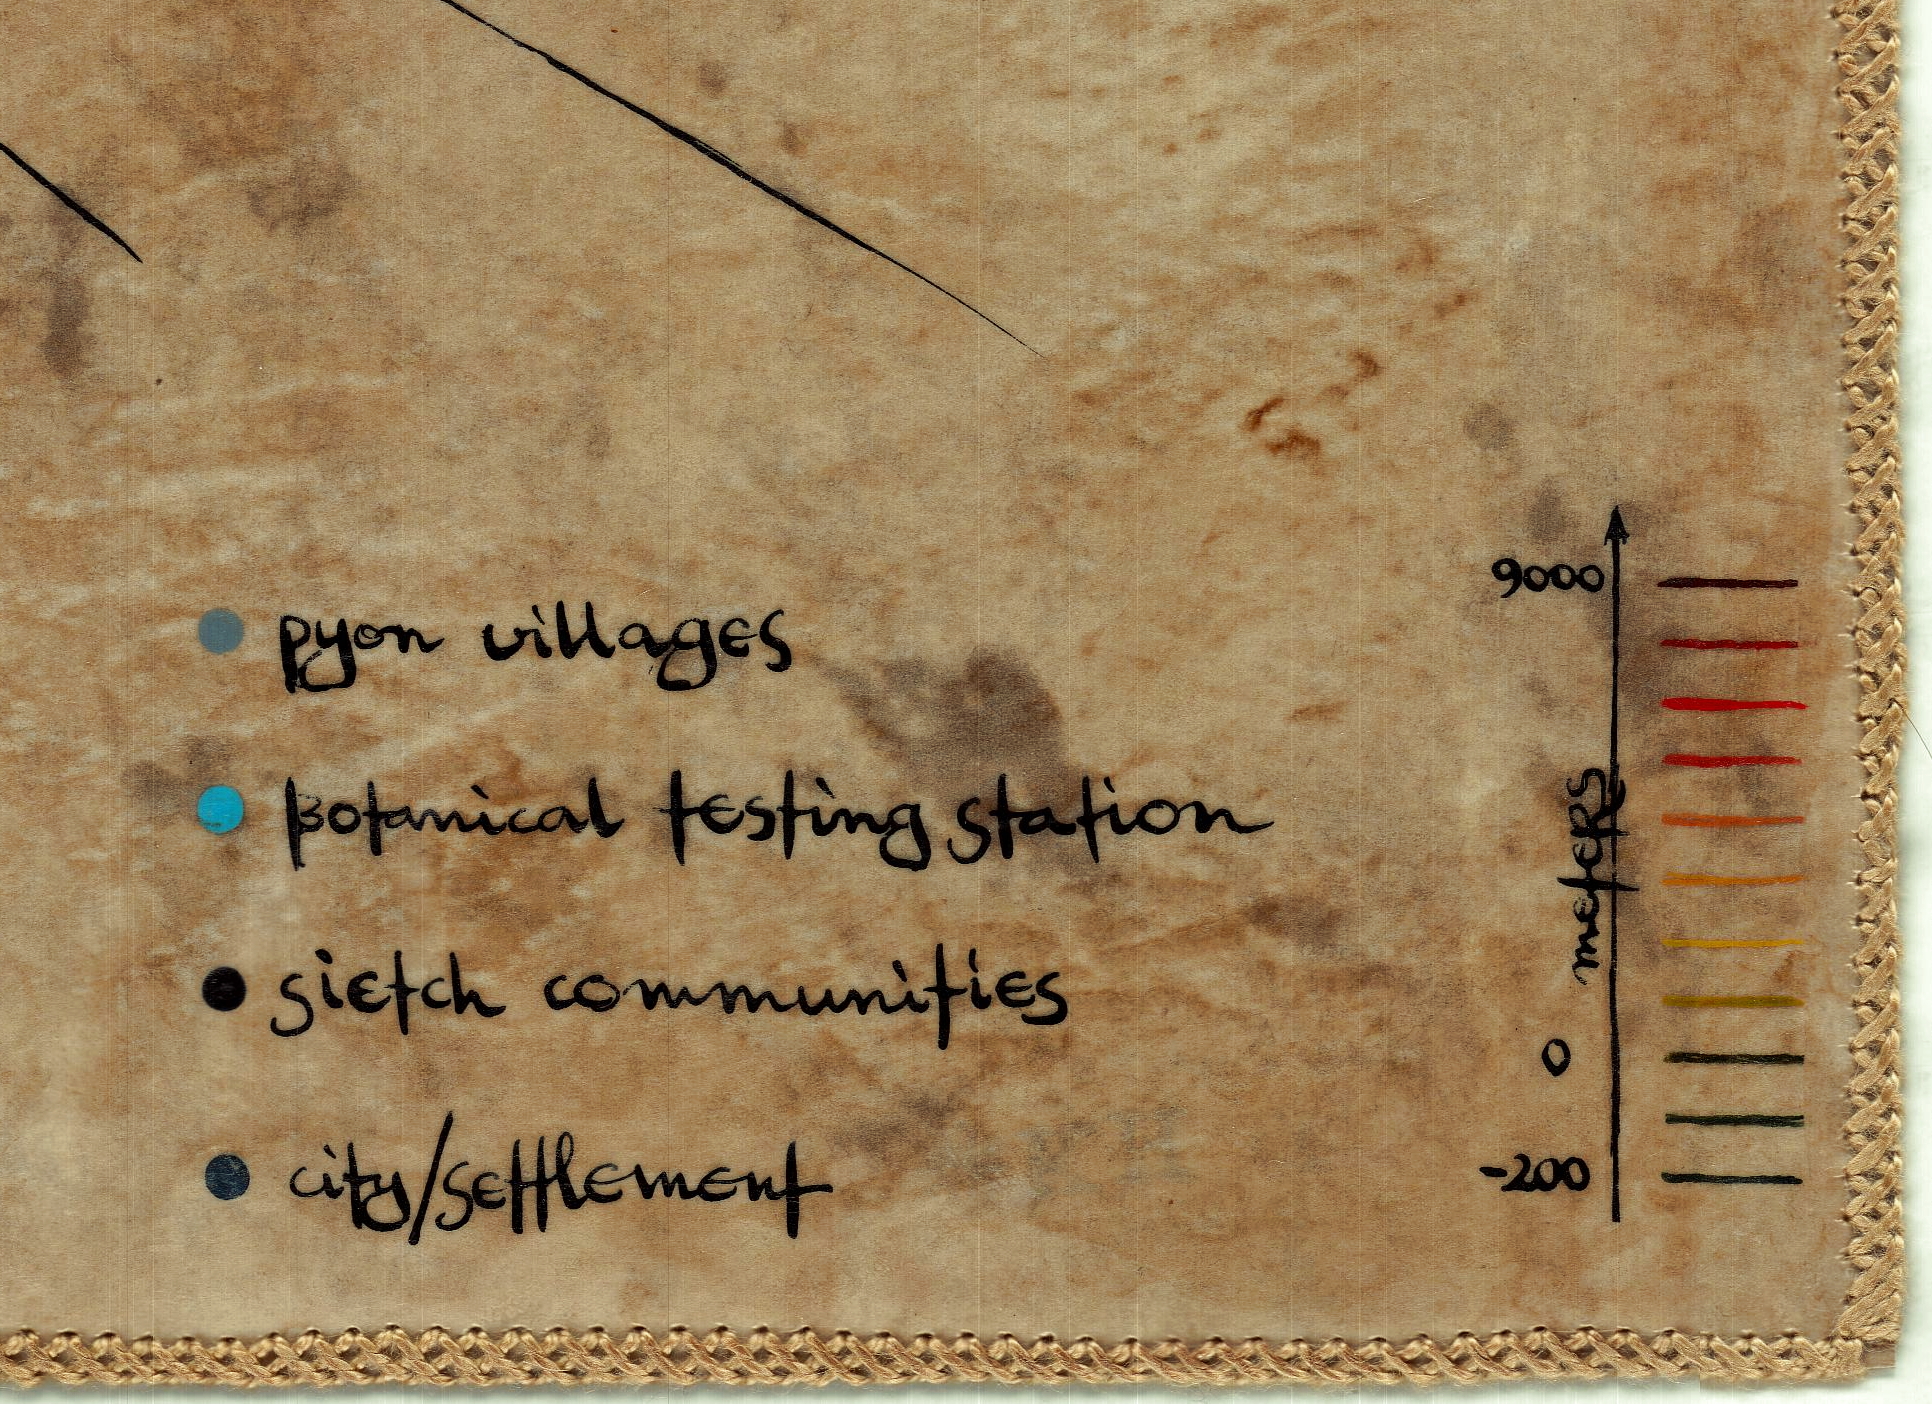 pyon villages
botanical testing station
sietch communities
city/settlement
9000
meters
0
-200